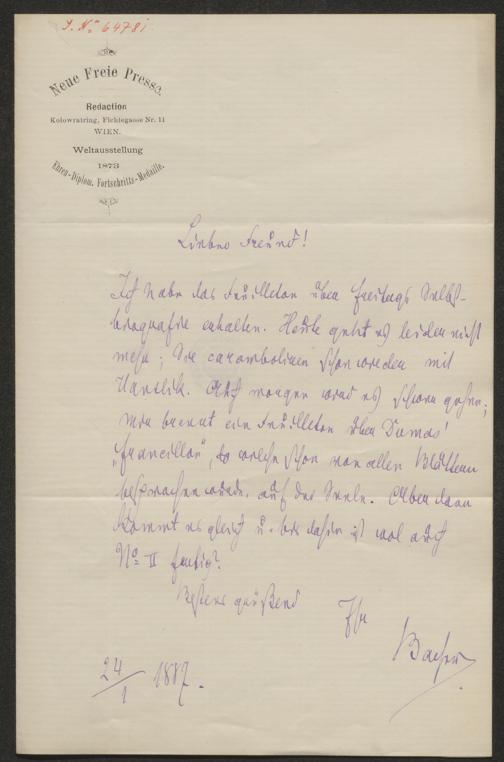 J. No 64781
Neue Freie Presse.
Redaction
Kolowratring, Fichtegasse Nr. 11
WIEN.
Weltausstellung
1873
Ehren-Diplom. Fortschritts-Medaille.
Lieber Freund!
Ich habe das Feuilleton über Freitags Selbst-
biografie erhalten. Heute geht es leider nicht
mehr; Sie carambolieren schon wieder mit
Hanslik. Auch morgen wird es schwer gehen;
mir brennt ein Feuilleton über Dumas'
"Francillon", welche schon von allen Blättern
besprochen wurde, auf der Seele. Aber dann
kommt es gleich u. bis dahin ist wol auch
No II fertig?
Bestens grüßend
Ihr
Bacher
24/1 1887.